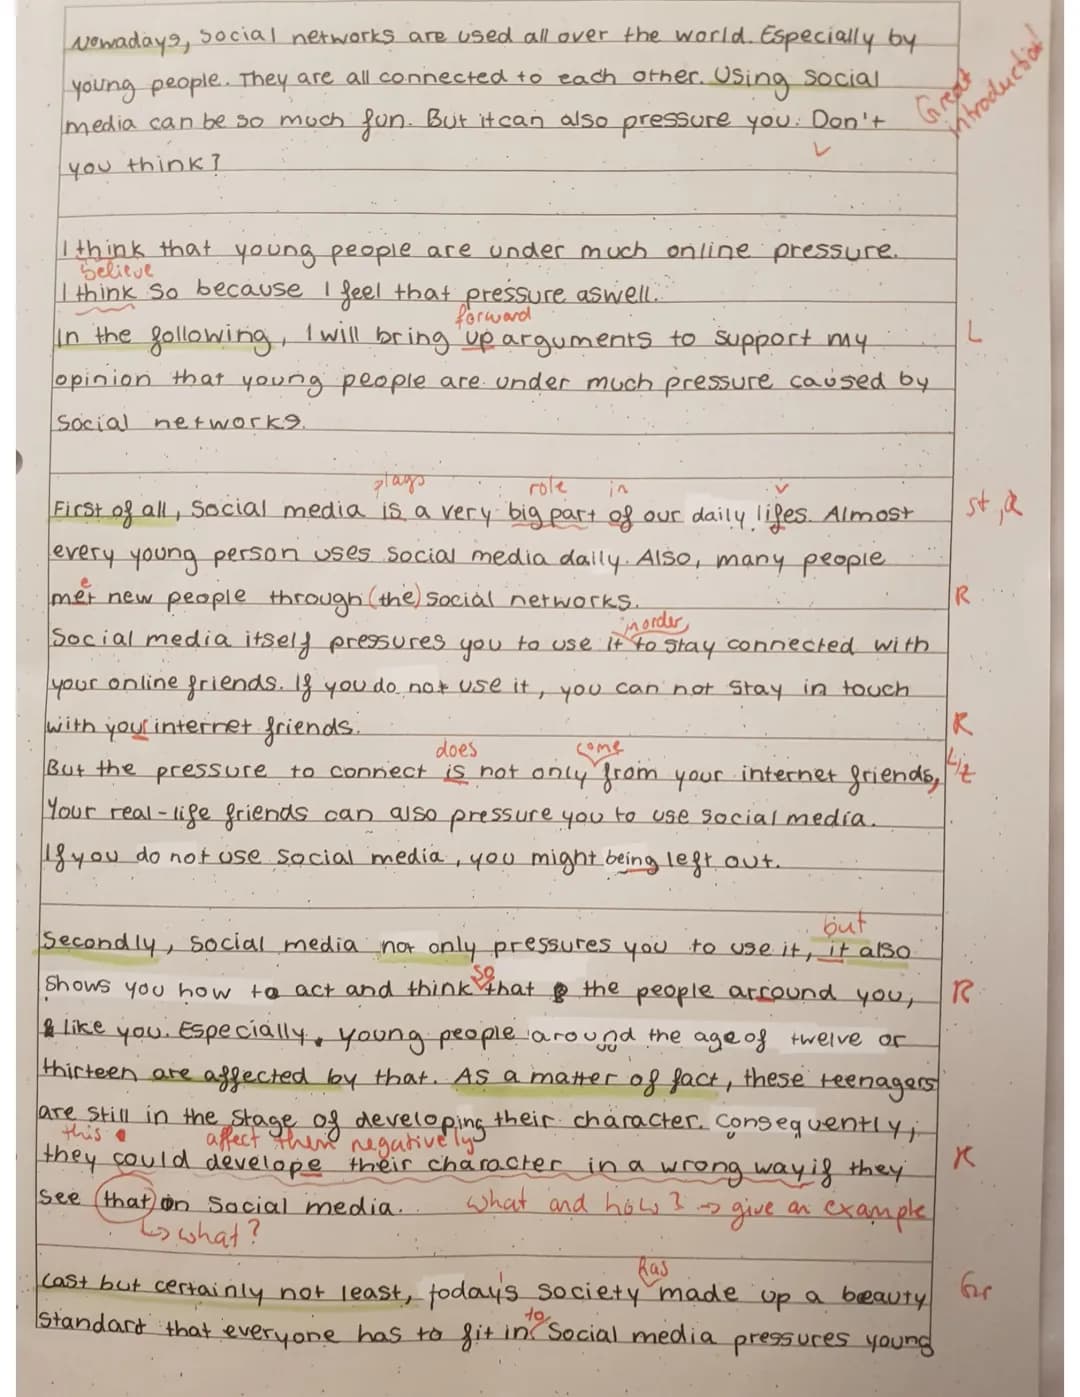 Nowadays, Social networks are used all over the world. Especially by
young people. They are all connected to each other. Using social
media can be so much fun. But it can also pressure you. Don't
Great introduction!
you think?
I think that young people are under much online pressure.
believe
I think so because I feel that pressure aswell.
forward
In the following, I will bring up arguments to support my
L
opinion that young people are under much pressure caused by
social networks.
plays role in
First of all, Social media is a very big part of our daily lifes. Almost
every young person uses social media daily. Also, many people
e
met new people through (the) social networks.
R
in order
Social media itself pressures you to use it to stay connected with
your online friends. If you do not use it, you can not stay in touch
with your internet friends.
R
does come
But the pressure to connect is not only from your internet friends,
Your real-life friends can also pressure you to use social media.
If you do not use social media, you might being left out.
but
Secondly, social media not only pressures you to use it, it also
so
shows you how to act and think that the people arround you,
R
like you. Especially, young people around the age of twelve or
thirteen are affected by that. As a matter of fact, these teenagers
are still in the stage of developing their character. Consequently,
this affect them negatively
they could develope their character in a wrong way if they
see that on Social media.
what and how? → give an example
↳ what?
has
Last but certainly not least, today's society made up a beauty
Gr
to
standart that everyone has to fit in. Social media pressures young